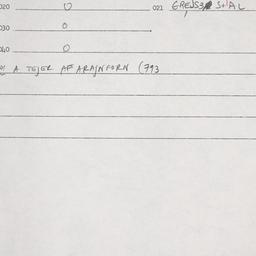 020 0 021 GREJS3 STAL
030 0
040 0
A TEJER AF ARAJNFORN (793